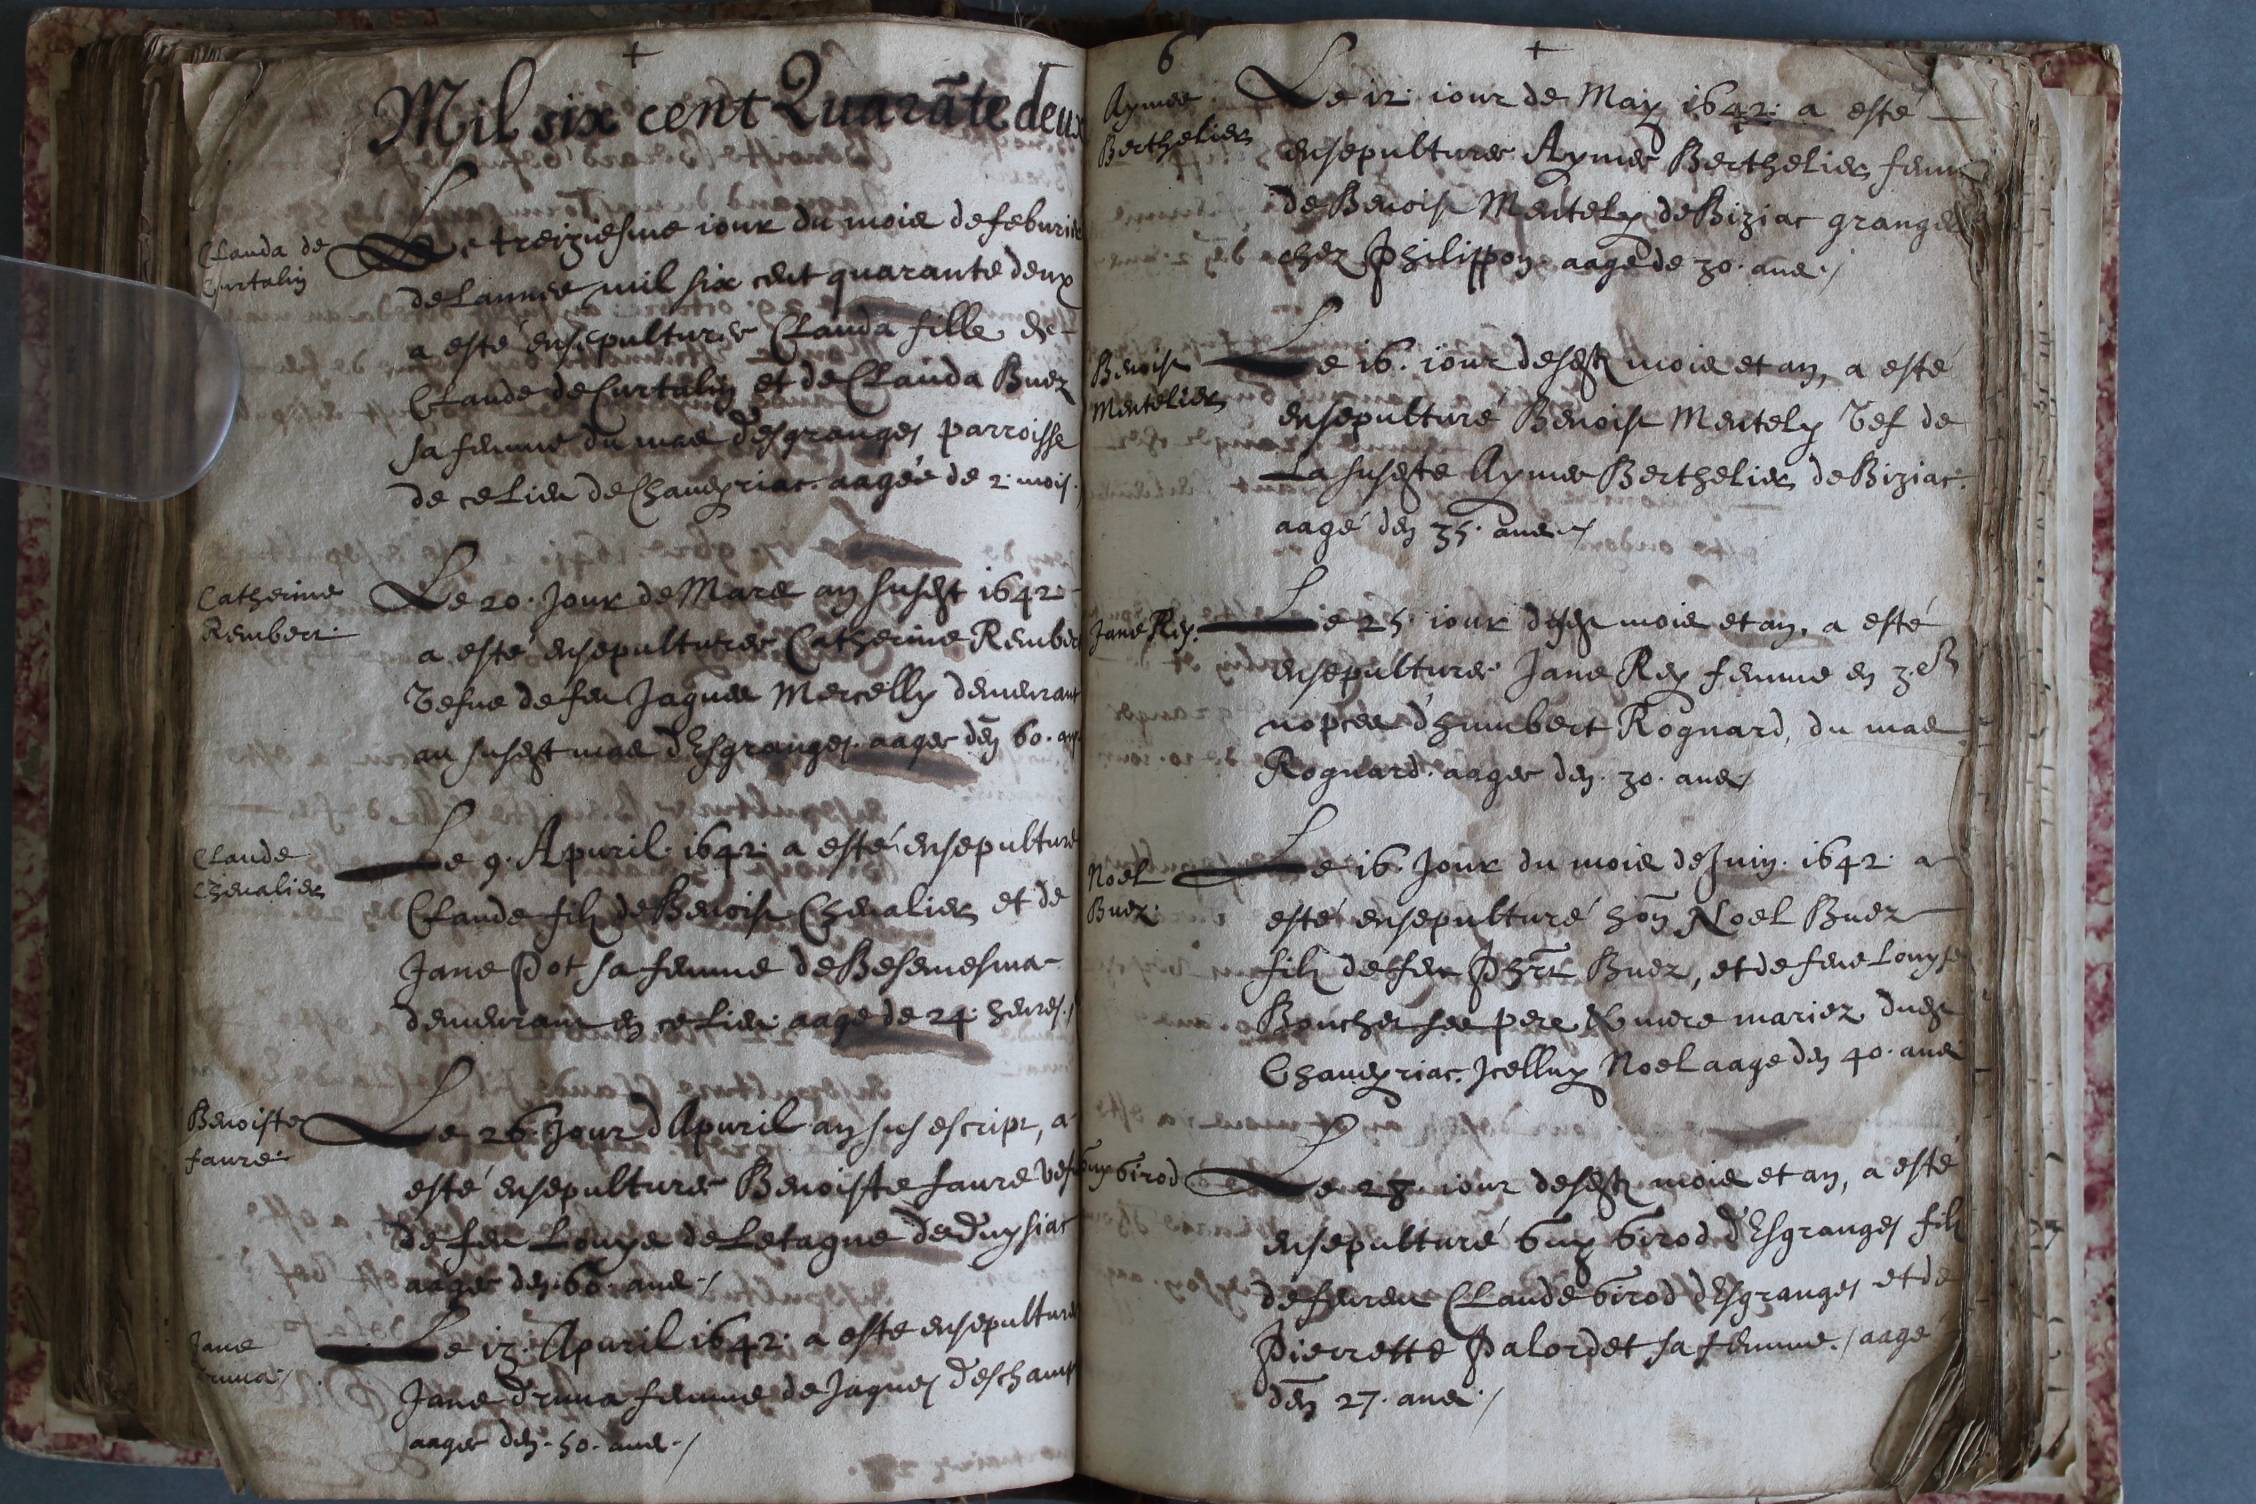 Mil six cent Quarāte deux
Clauda de
Curtalin
Le treiziesme iour du mois de feburie
de Lannee mil six cent quarante deux
a esté ensepulturee Clauda fille de
Claude de Curtalin et de Clauda Buez
sa femme du mas d'Esgranges parroisse
de ce Lieu de Chaueyriac. aagée de 2. mois.
Catherine
Rembert
Le 20. Jour de Mars an susdt 1642
a esté ensepulturee Catherine Rember
Vefue de feu Jaques Mercelly demeurant
au susdt mas d'Esgranges. aagee d'en 60. ans
Claude
Chevalier
Le 9. Apuril. 1642. a esté ensepulture
Claude filz de Benoist Chevalier et de
Jane Pot sa femme de Besemesma
demeurant en ce Lieu. aage de 24. heures./
Benoiste
faure.
Le 26. Jour d'Apuril an sus escript, a
esté ensepulturee Benoiste faure vef
de feu Louys de Letagne de
aagee den. 60. ans./
Jane
Druna
Le 17. Apuril 1642. a este ensepulturee
Jane Druna femme de Jaques Deschamp
aagee den. 50. ans./
6
Aymee
Berthelier
Le 12. iour de May 1642. a esté
ensepulturee Aymee Berthelier femm
de Benoist Mentely de Biziac grange
chez Philippon. aagé de 30. ans./
Benoist
Mentelier
Le 16. iour desdt mois et an, a esté
ensepulturé Benoist Mentely Vef de
La susdte Aymee Berthelier de Biziac.
aagé den 35. ans./
Jane Rey.
Le 25. iour desdt mois et an. a esté
ensepulturee Jane Rey femme en 3.es
nopces d'humbert Rognard, du mas
Rognard. aagee den. 30. ans./
Noel
Buez.
Le 16. Jour du mois de Juin. 1642. a
esté ensepulturé hōn Noel Buez
filz de feu Phrt Buez, et de feue Louyse
Boucher ses pere & mere mariez dudt
Chaueyriac. Icelluy Noel aage den 40. ans
Guy Girod
Le 28. iour desdt mois et an, a esté
ensepulturé Guy Girod d'Esgranges filz
de feu Claude Girod d'Esgranges et de
Pierrette Palordet sa femme./ aagé
d'en 27. ans./